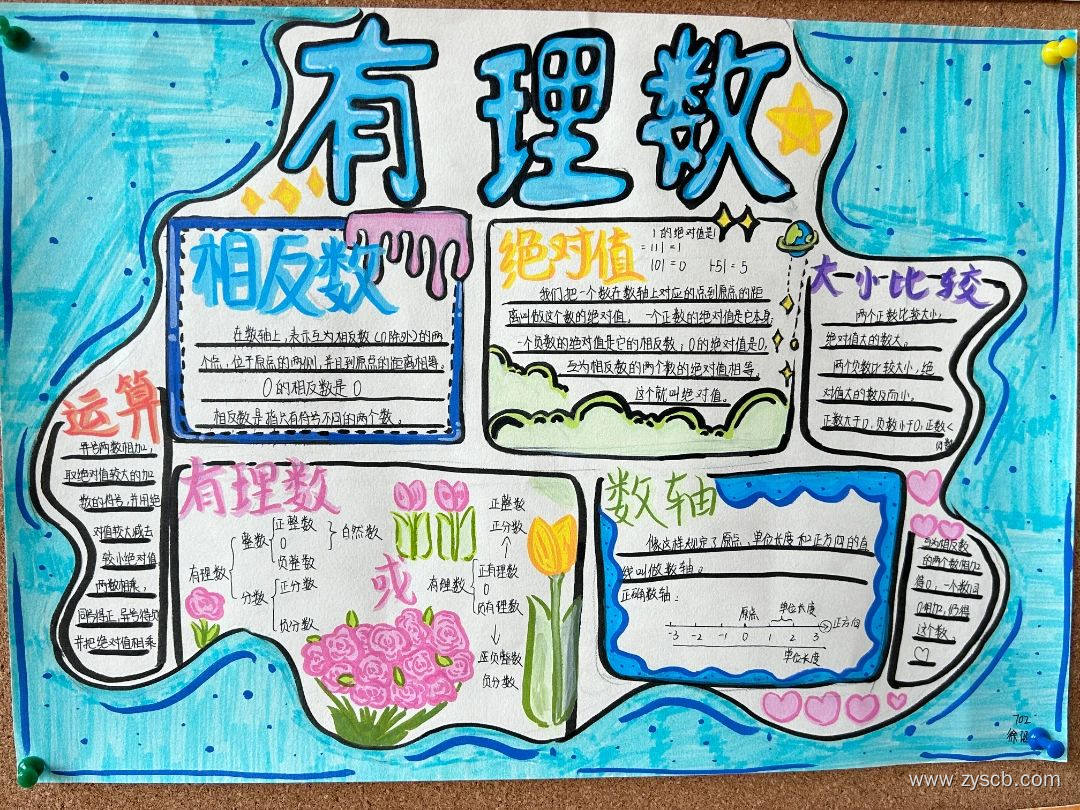 有理数
相反数
在数轴上,表示互为相反数(0除外)的两
个点,位于原点的两侧,并且到原点的距离相等。
0的相反数是0
相反数是指只有符号不同的两个数。
绝对值
1的绝对值是1
=|1|=1
|0|=0 |-5|=5
我们把一个数在数轴上对应的点到原点的距
离叫做这个数的绝对值,一个正数的绝对值是它本身,
一个负数的绝对值是它的相反数;0的绝对值是0,
互为相反数的两个数的绝对值相等,
这个就叫绝对值。
大小比较
两个正数比较大小,
绝对值大的数大。
两个负数比较大小,绝
对值大的数反而小。
正数大于0,负数小于0,正数<
负数
运算
异号两数相加,
取绝对值较大的加
数的符号,并用绝
对值较大减去
较小绝对值
两数相乘,
同号得正,异号得负
并把绝对值相乘
有理数
有理数
整数
正整数
0
负整数
自然数
分数
正分数
负分数
或
有理数
正有理数
0
负有理数
正整数
正分数
负整数
负分数
数轴
像这样规定了原点、单位长度和正方向的直
线叫做数轴。
正确数轴:
原点 单位长度
正方向
-3 -2 -1 0 1 2 3
单位长度
互为相反数
的两个数相加
得0,一个数同
0相加,仍得
这个数
702
www.zyscb.com